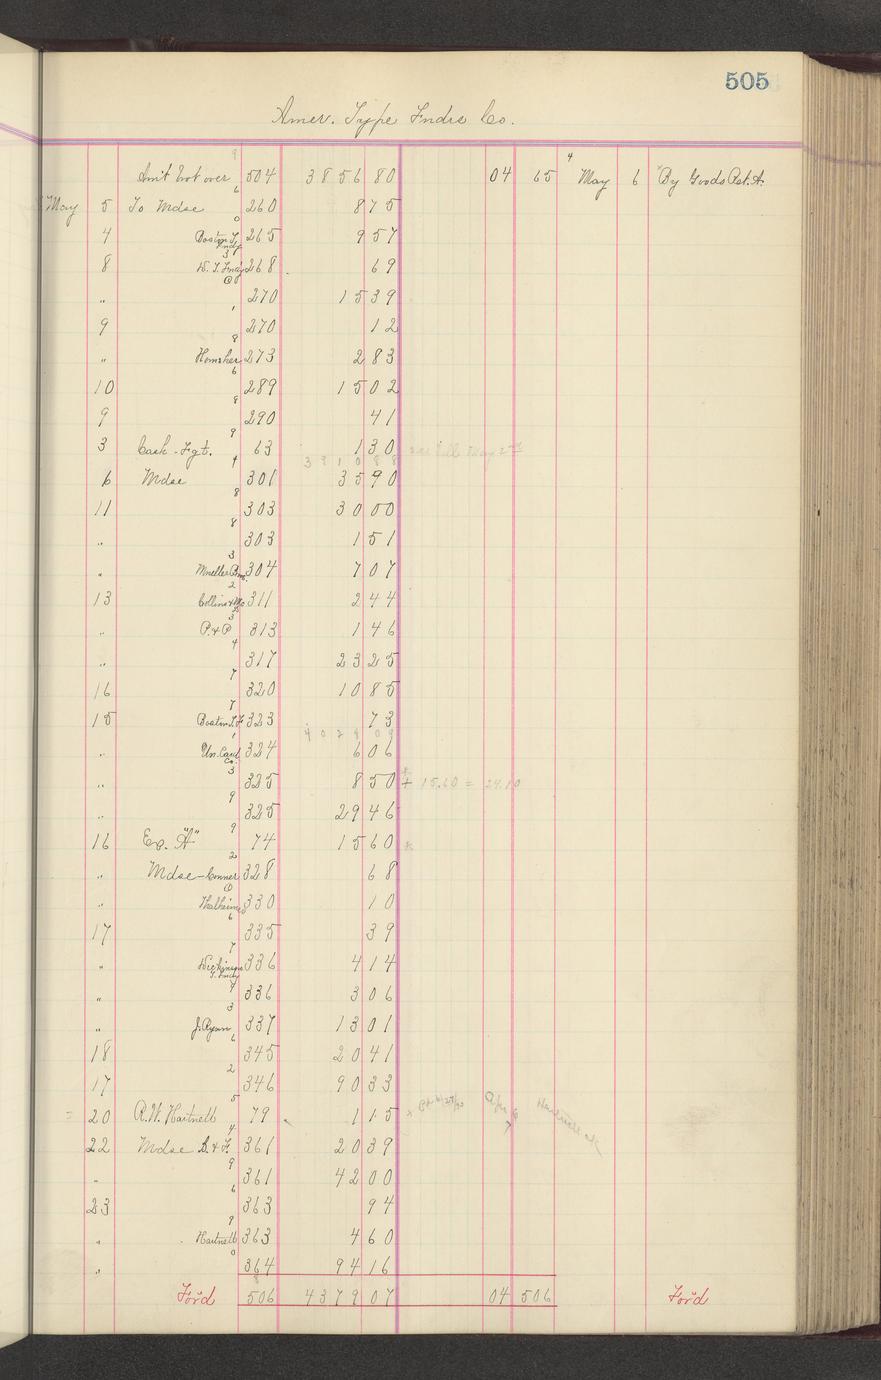 505
Amer. Type Fndrs Co.
Am't brot over 504 3856 80 04 65 May 6 "By Goods Ret. A.
May 5 To Mdse 260 8 75
4 Boston T. Fndy 265 9 57
8 268 69
" 270 15 39
9 270 12
" 273 2 83
10 289 15 02
9 290 41
3 Cash - Fgt. 63 1 30
3910 88
6 Mdse 301 35 90
11 303 30 00
" 303 1 51
" 304 7 07
13 311 2 44
" P. & P 313 1 46
" 317 23 25
16 320 10 85
15 Boston T. F 323 73
4028 09
" Un. Card Co. 324 6 06
" 325 8 50 + 15.60 = 24.10
" 325 29 46
16 Ex. "A" 74 15 60 x
" Mdse - Conner 328 68
" 330 10
17 335 39
" 336 4 14
" 336 3 06
" J. Ryan 337 13 01
18 345 20 41
17 346 90 33
= 20 R. W. Hartnett 79 1 15
22 Mdse B. & F. 361 20 39
" 361 42 00
23 363 94
" Hartnett 363 4 60
" 364 94 16
For'd 506 4379 07 04 506 For'd